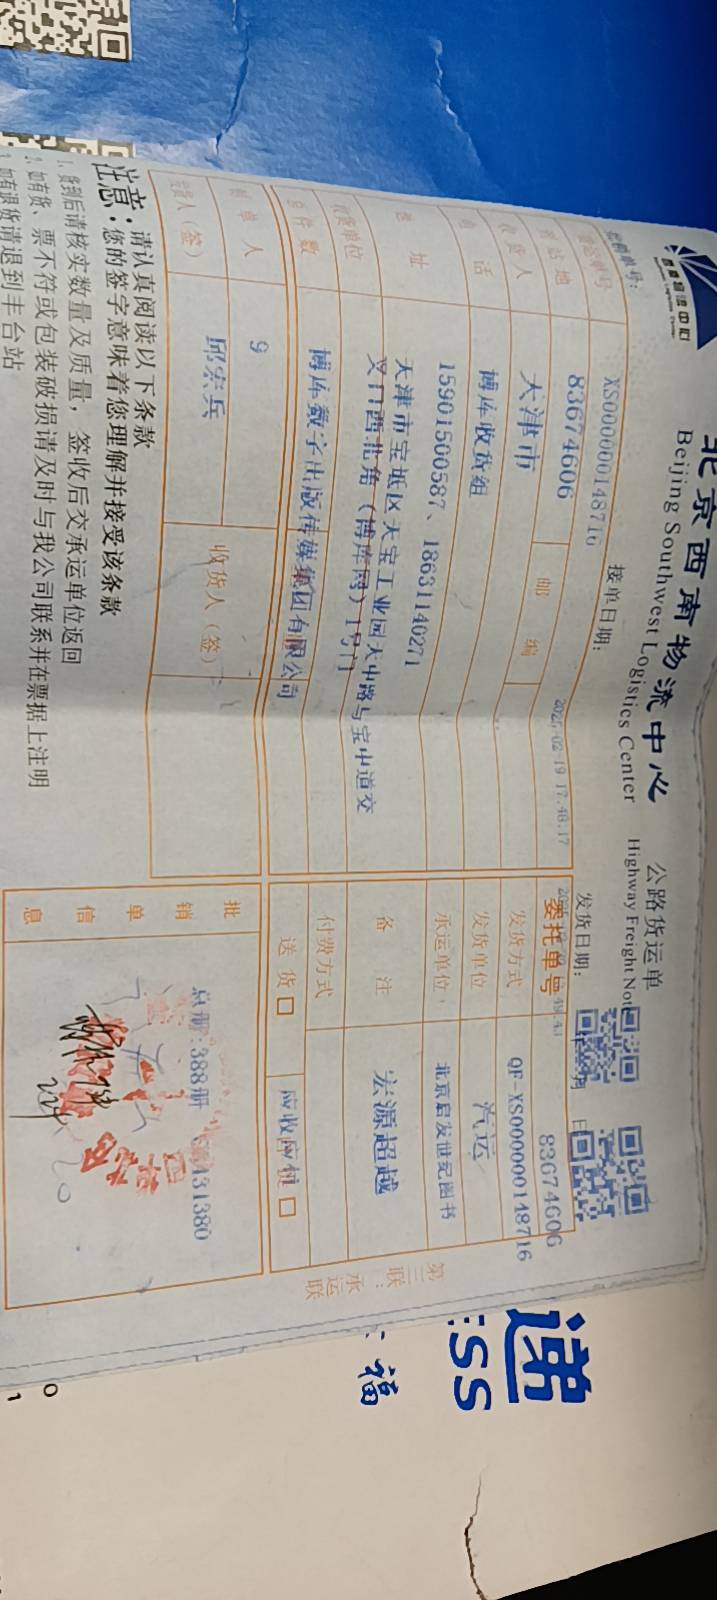 西南物流中心
北京西南物流中心
Beijing Southwest Logistics Center
公路货运单
Highway Freight Note
接单日期：
发货日期：
年 月 日
XS000000148716
货运单号
83674606
邮 编
2025-02-19 17:48:17
委托单号
83674606
到站地
天津市
发货方式
QF-XS000000148716
收货人
博库收货组
发货单位
汽运
电 话
15901500587、18631140271
承运单位
北京启发世纪图书
地 址
天津市宝坻区天宝工业园天中路与宝中道交
叉口西北角（博库网）1号门
备 注
宏源超越
收货单位
博库数字出版传媒集团有限公司
付费方式
总件数
9
送 货 □
应收应付 □
制 单 人
邱宏兵
收货人（签）
批 销 单 信 息
总册：388册
431380
第三联：承运联
注意：
请认真阅读以下条款
您的签字意味着您理解并接受该条款
1、货到后请核实数量及质量，签收后交承运单位返回
2、如有货、票不符或包装破损请及时与我公司联系并在票据上注明
3、如有退货请退到丰台站
递
ESS
福